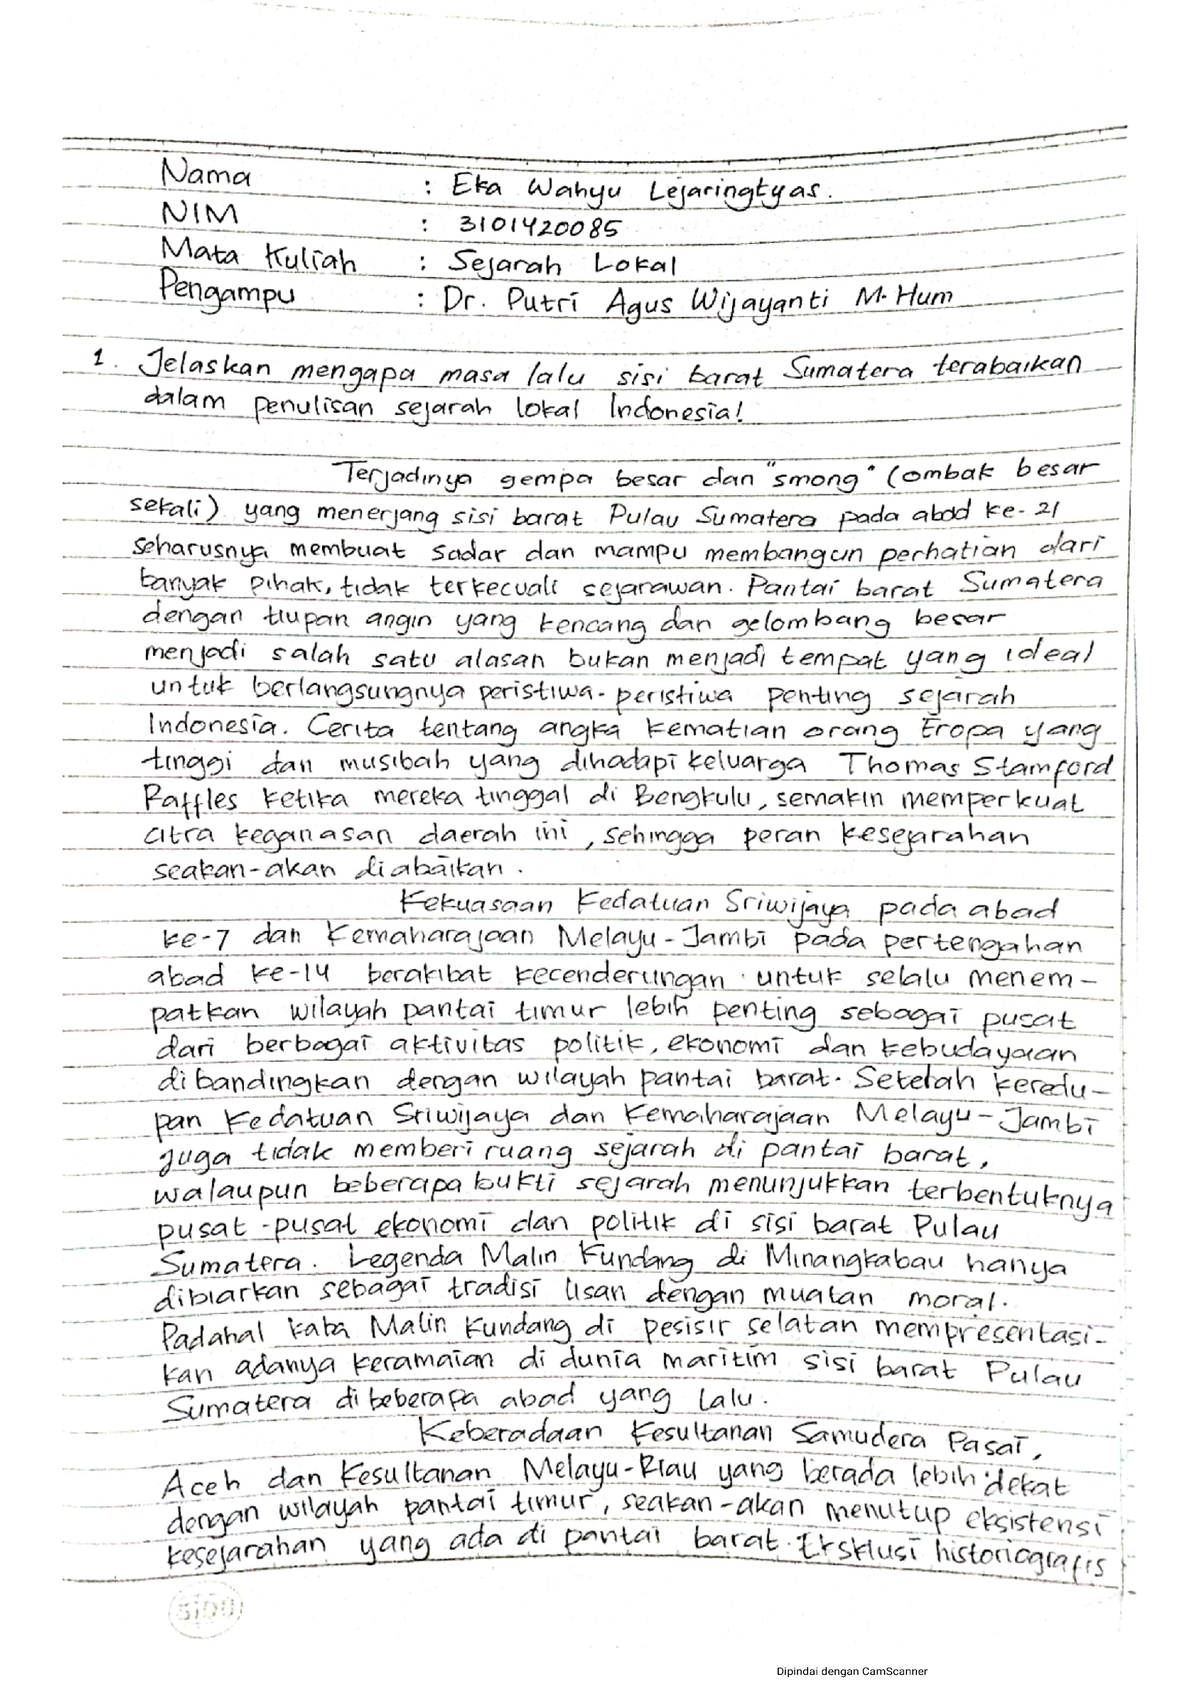 Nama : Eka Wahyu Lejaringtyas.
NIM : 3101420085
Mata Kuliah : Sejarah Lokal
Pengampu : Dr. Putri Agus Wijayanti M.Hum
1. Jelaskan mengapa masa lalu sisi barat Sumatera terabaikan
dalam penulisan sejarah lokal Indonesia!
Terjadinya gempa besar dan "smong" (ombak besar
sekali) yang menerjang sisi barat Pulau Sumatera pada abad ke-21
seharusnya membuat sadar dan mampu membangun perhatian dari
banyak pihak, tidak terkecuali sejarawan. Pantai barat Sumatera
dengan tiupan angin yang kencang dan gelombang besar
menjadi salah satu alasan bukan menjadi tempat yang ideal
untuk berlangsungnya peristiwa-peristiwa penting sejarah
Indonesia. Cerita tentang angka kematian orang Eropa yang
tinggi dan musibah yang dihadapi keluarga Thomas Stamford
Raffles ketika mereka tinggal di Bengkulu, semakin memperkuat
citra keganasan daerah ini, sehingga peran kesejarahan
seakan-akan diabaikan.
Kekuasaan Kedatuan Sriwijaya pada abad
ke-7 dan Kemaharajaan Melayu-Jambi pada pertengahan
abad ke-14 berakibat kecenderungan untuk selalu menem-
patkan wilayah pantai timur lebih penting sebagai pusat
dari berbagai aktivitas politik, ekonomi dan kebudayaan
dibandingkan dengan wilayah pantai barat. Setelah keredu-
pan Kedatuan Sriwijaya dan Kemaharajaan Melayu-Jambi
juga tidak memberi ruang sejarah di pantai barat,
walaupun beberapa bukti sejarah menunjukkan terbentuknya
pusat-pusat ekonomi dan politik di sisi barat Pulau
Sumatera. Legenda Malin Kundang di Minangkabau hanya
dibiarkan sebagai tradisi lisan dengan muatan moral.
Padahal kaba Malin Kundang di pesisir selatan mempresentasi-
kan adanya keramaian di dunia maritim sisi barat Pulau
Sumatera di beberapa abad yang lalu.
Keberadaan Kesultanan Samudera Pasai,
Aceh dan Kesultanan Melayu-Riau yang berada lebih dekat
dengan wilayah pantai timur, seakan-akan menutup eksistensi
kesejarahan yang ada di pantai barat. Eksklusi historiografis
SIDU
Dipindai dengan CamScanner